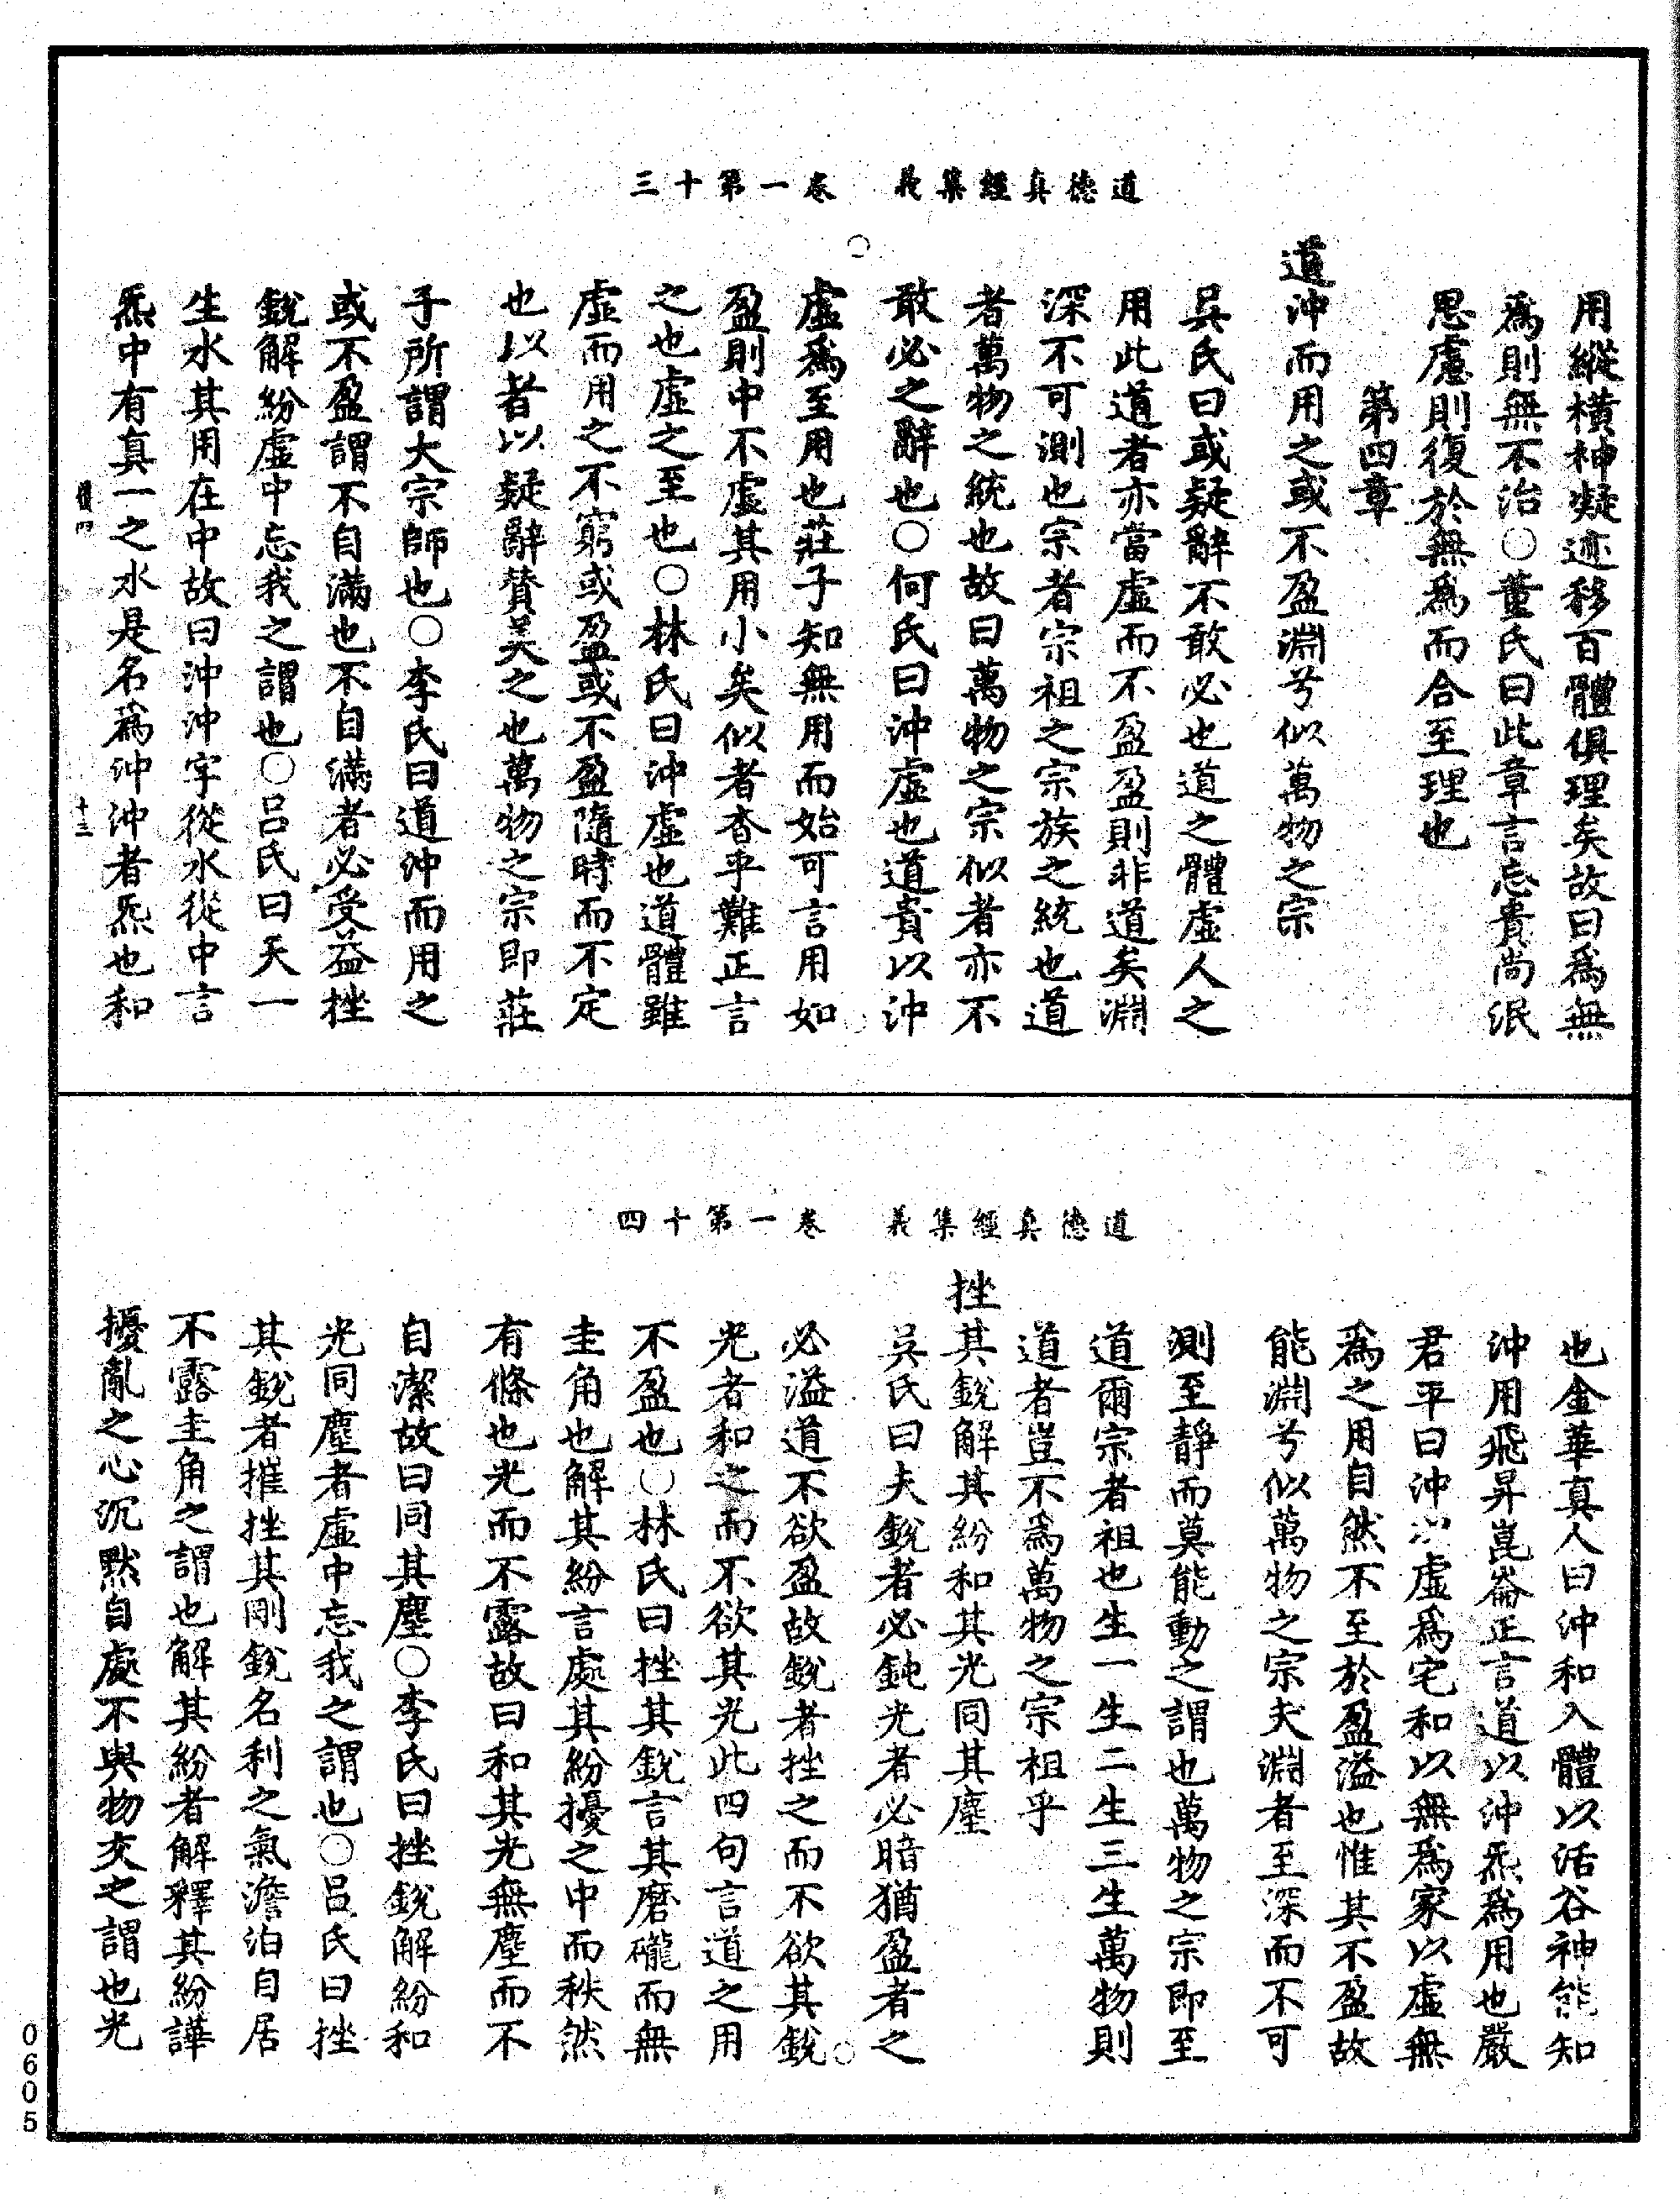 道德真經集義　卷一第十三
用縱橫神凝迹移百體俱理矣故曰爲無
爲則無不治○董氏曰此章言忘貴尚泯
思慮則復於無爲而合至理也
第四章
道沖而用之或不盈淵兮似萬物之宗
吳氏曰或疑辭不敢必也道之體虛人之
用此道者亦當虛而不盈盈則非道矣淵
深不可測也宗者宗祖之宗族之統也道
者萬物之統也故曰萬物之宗似者亦不
敢必之辭也○何氏曰沖虛也道貴以沖
虛爲至用也莊子知無用而始可言用如
盈則中不虛其用小矣似者杳乎難正言
之也虛之至也○林氏曰沖虛也道體雖
虛而用之不窮或盈或不盈隨時而不定
也以者以疑辭贊美之也萬物之宗即莊
子所謂大宗師也○李氏曰道沖而用之
或不盈謂不自滿也不自滿者必受益挫
銳解紛虛中忘我之謂也○呂氏曰天一
生水其用在中故曰沖沖字從水從中言
炁中有真一之水是名爲沖沖者炁也和
十三
道德真經集義　卷一第十四
也金華真人曰沖和入體以活谷神能知
沖用飛昇崑崙正言道以沖炁爲用也嚴
君平曰沖以虛爲宅和以無爲家以虛無
爲之用自然不至於盈溢也惟其不盈故
能淵兮似萬物之宗夫淵者至深而不可
測至靜而莫能動之謂也萬物之宗即至
道爾宗者祖也生一生二生三生萬物則
道者豈不爲萬物之宗祖乎
挫其銳解其紛和其光同其塵
吳氏曰夫銳者必鈍光者必暗猶盈者之
必溢道不欲盈故銳者挫之而不欲其銳
光者和之而不欲其光此四句言道之用
不盈也○林氏曰挫其銳言其磨礲而無
圭角也解其紛言處其紛擾之中而秩然
有條也光而不露故曰和其光無塵而不
自潔故曰同其塵○李氏曰挫銳解紛和
光同塵者虛中忘我之謂也○呂氏曰挫
其銳者摧挫其剛銳名利之氣澹泊自居
不露圭角之謂也解其紛者解釋其紛譁
擾亂之心沉默自處不與物交之謂也光
0605